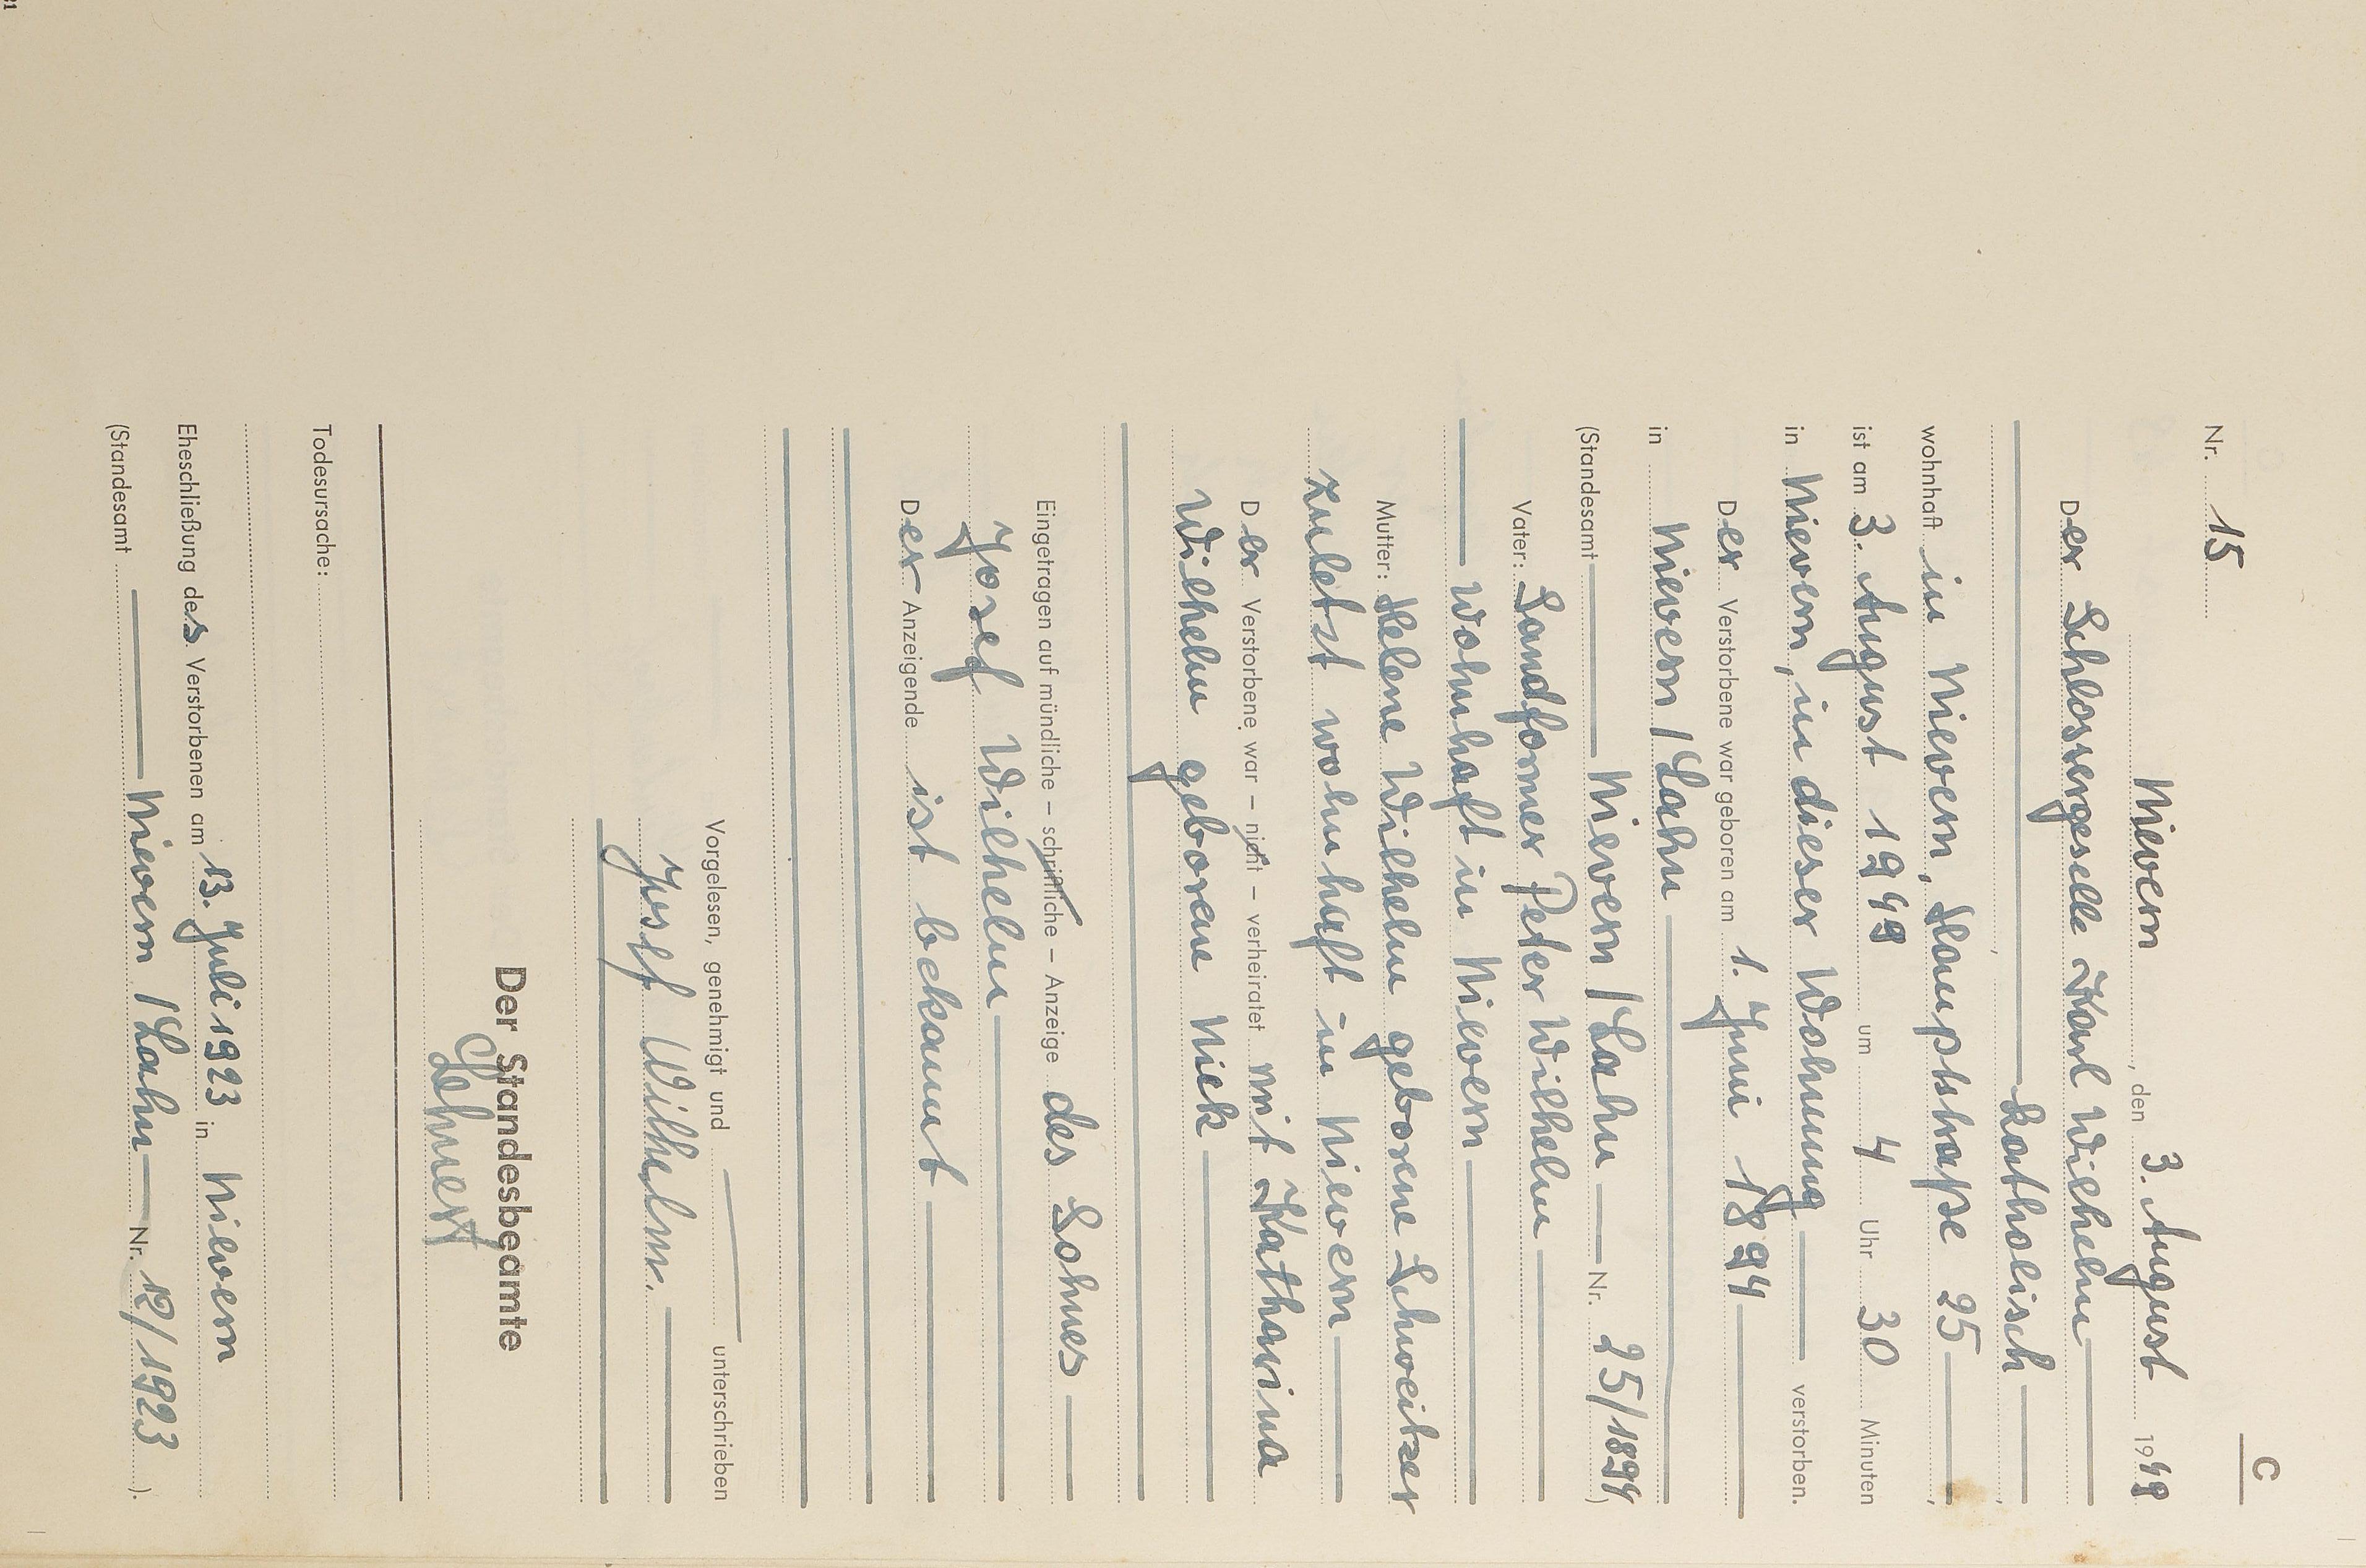 C
Nr. 15
Nievern, den 3. August 1949
Der Schlossergeselle Karl Wilhelm
katholisch,
wohnhaft in Nievern, Hauptstraße 25,
ist am 3. August 1949 um 4 Uhr 30 Minuten
in Nievern, in dieser Wohnung verstorben.
Der Verstorbene war geboren am 1. Juni 1894
in Nievern / Lahn
(Standesamt Nievern / Lahn Nr. 25/1894)
Vater: Sandformer Peter Wilhelm
wohnhaft in Nievern
Mutter: Helene Wilhelm geborene Schweitzer
zuletzt wohnhaft in Nievern
Der Verstorbene war – nicht – verheiratet mit Katharina
Wilhelm geborene Niek
Eingetragen auf mündliche – schriftliche – Anzeige des Sohnes
Josef Wilhelm
Der Anzeigende ist bekannt
Vorgelesen, genehmigt und unterschrieben
Josef Wilhelm.
Der Standesbeamte
Lehnert
Todesursache:
Eheschließung des Verstorbenen am 13. Juli 1923 in Nievern
(Standesamt Nievern / Lahn Nr. 12/1923).